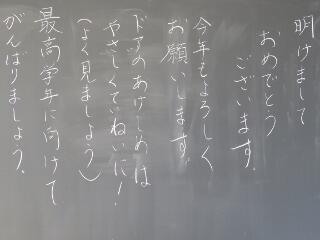 明けまして
おめでとう
ございます。
今年もよろしく
お願いします。
ドアのあけしめは
やさしくていねいに!
(よく見ましょう)
最高学年に向けて
がんばりましょう。